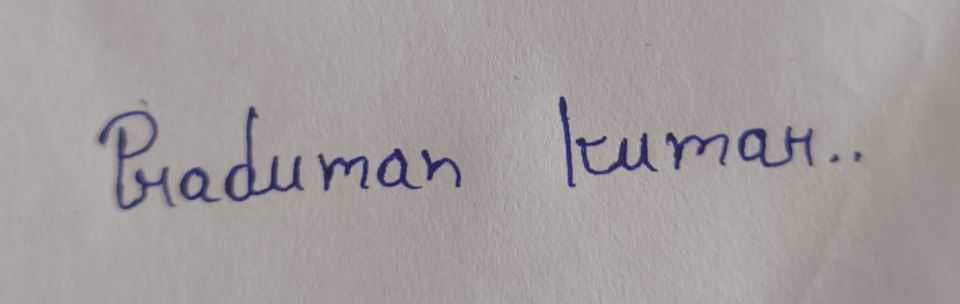 Praduman kumar..